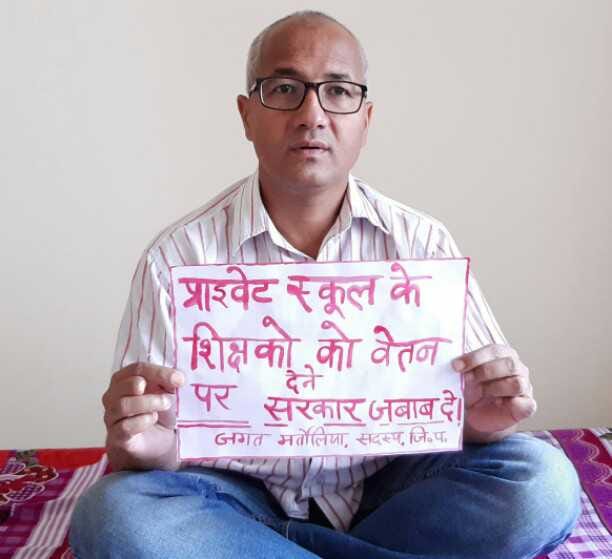 प्राइवेट स्कूल के
शिक्षको को वेतन
देने
पर सरकार जबाब दे।
जगत मर्तोलिया, सदस्य, जि॰प॰